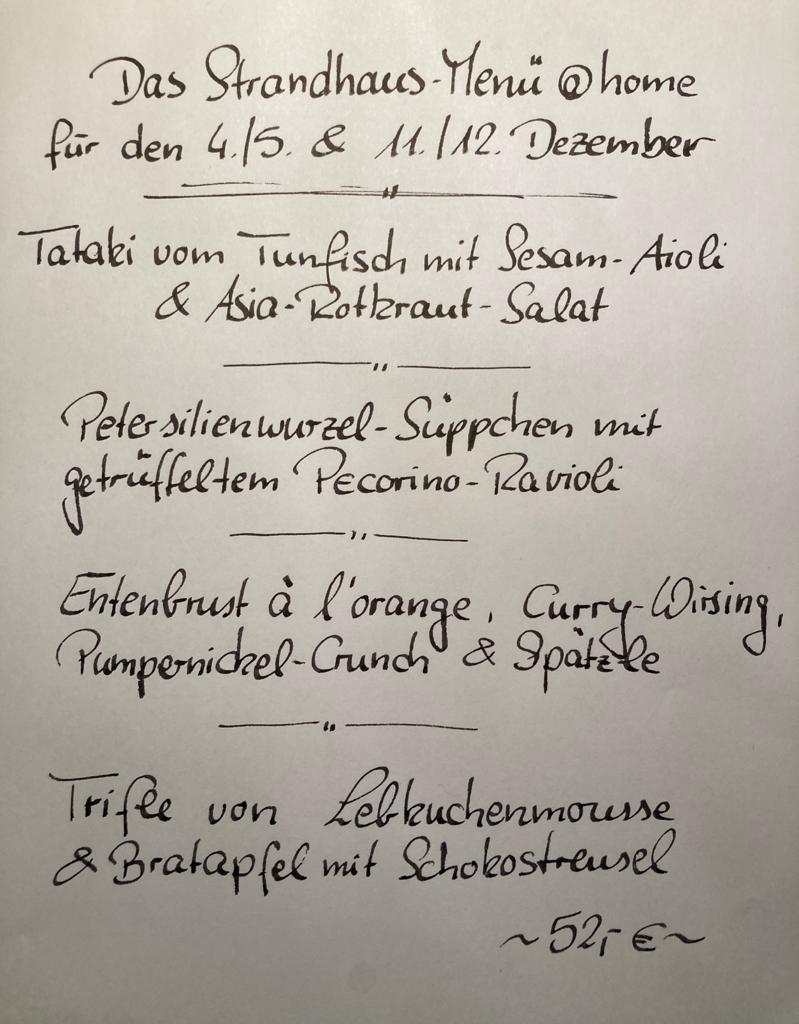 Das Strandhaus-Menü @home
für den 4./5. & 11./12. Dezember
Tataki vom Tunfisch mit Sesam-Aioli
& Asia-Rotkraut-Salat
Petersilienwurzel-Süppchen mit
getrüffeltem Pecorino-Ravioli
Entenbrust à l'orange, Curry-Wirsing,
Pumpernickel-Crunch & Spätzle
Trifle von Lebkuchenmousse
& Bratapfel mit Schokostreusel
~52,- €~